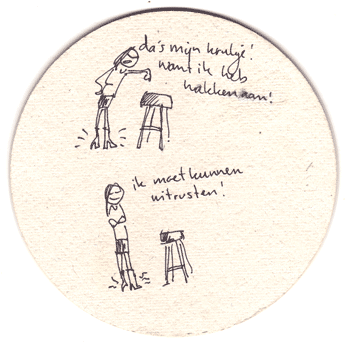 da's mijn krukje!
want ik heb
hakken aan!
ik moet kunnen
uitrusten!